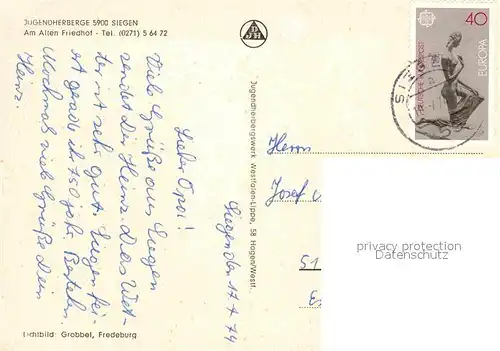 JUGENDHERBERGE 5900 SIEGEN
Am Alten Friedhof - Tel. (0271) 5 64 72
DJH
40
DEUTSCHE BUNDESPOST
EUROPA
CEPT
Siegen den 17.4.74
Lieber Opa!
Viele Grüße aus Siegen
sendet Dir Heinz. Das Wet-
ter ist sehr gut. Siegen fei-
ert grade ihr 750 jähr. Bestehn.
Nochmals viele Grüße Dein
Heinz.
Jugendherbergswerk Westfalen-Lippe, 58 Hagen/Westf.
Herrn
Josef
51
privacy protection
normal_card
Lichtbild: Grobbel, Fredeburg